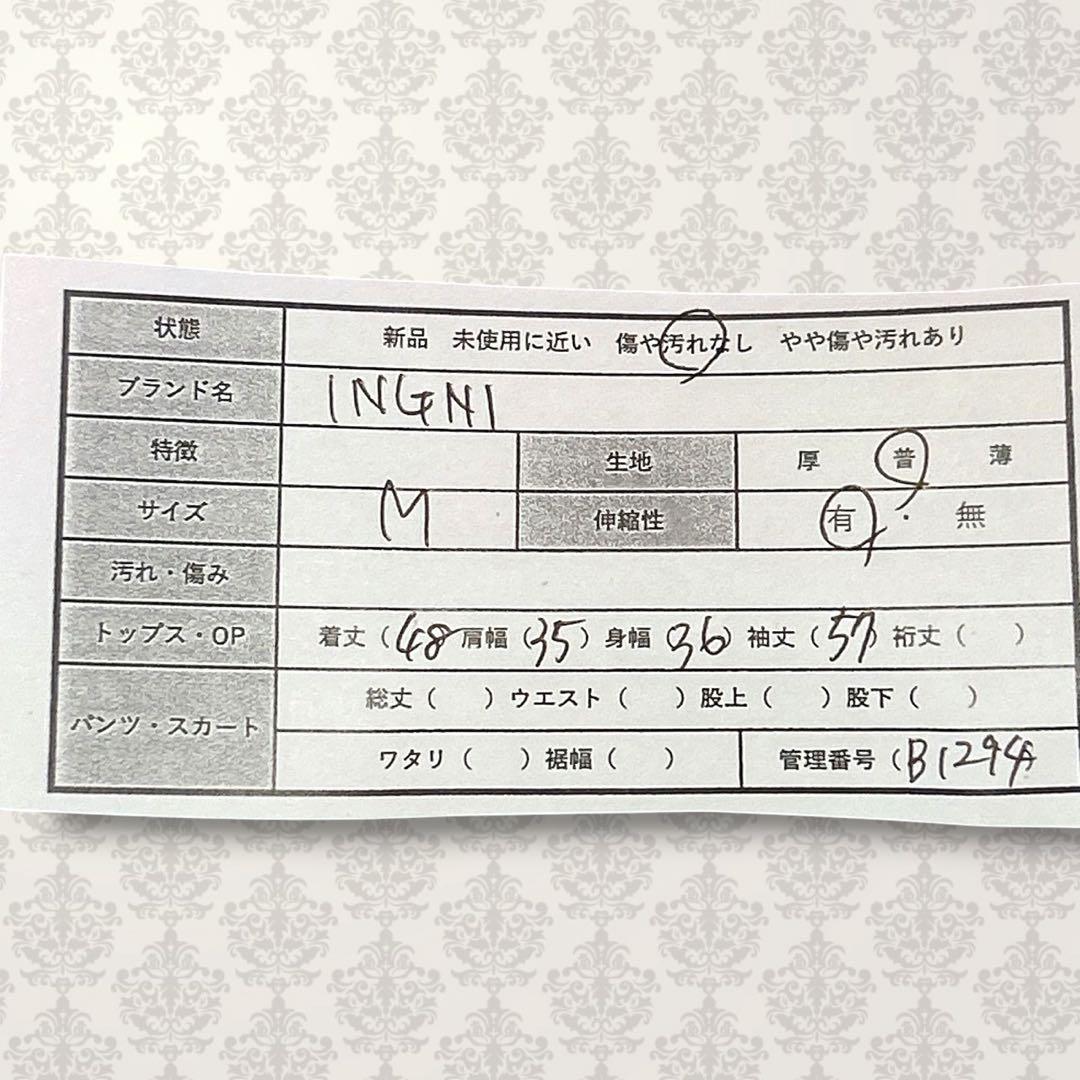 状態 新品 未使用に近い 傷や汚れなし やや傷や汚れあり
ブランド名 INGNI
特徴 生地 厚 普 薄
サイズ M 伸縮性 有・無
汚れ・傷み
トップス・OP 着丈(48 肩幅(35)身幅 36)袖丈(57)裄丈( )
パンツ・スカート 総丈( )ウエスト( )股上( )股下( )
ワタリ( )裾幅( ) 管理番号(B1294